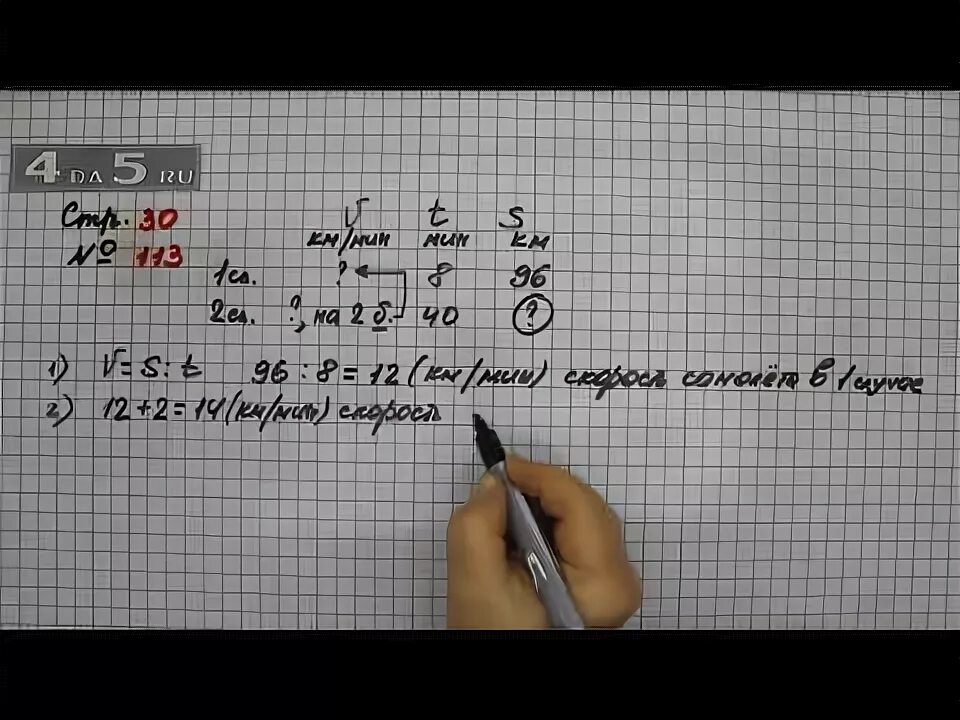 4 DA 5 RU
Стр. 30
№ 113
V t S
км/мин мин км
1 сл. ? 8 96
2 сл. ?, на 2 б. 40 ?
1) V = S : t 96 : 8 = 12 (км/мин) скорость самолёта в 1 случае
2) 12 + 2 = 14 (км/мин) скорость